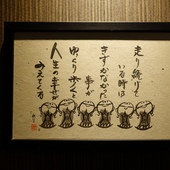 走り続けて
いる時は
きずかなかった
事が
ゆっくり歩くと
人生の幸せが
みえてくる